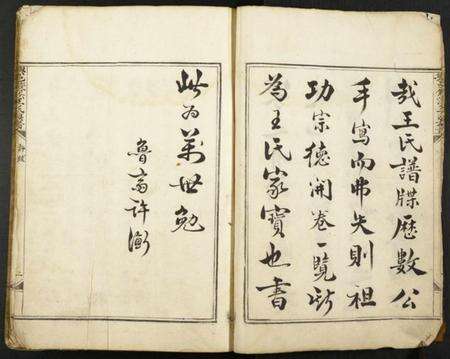 哉王氏譜牒歷數公
手寫而弗失則祖
功宗德開卷一覽斯
為王氏家寶也書
此为萬世勉
魯齋許衡